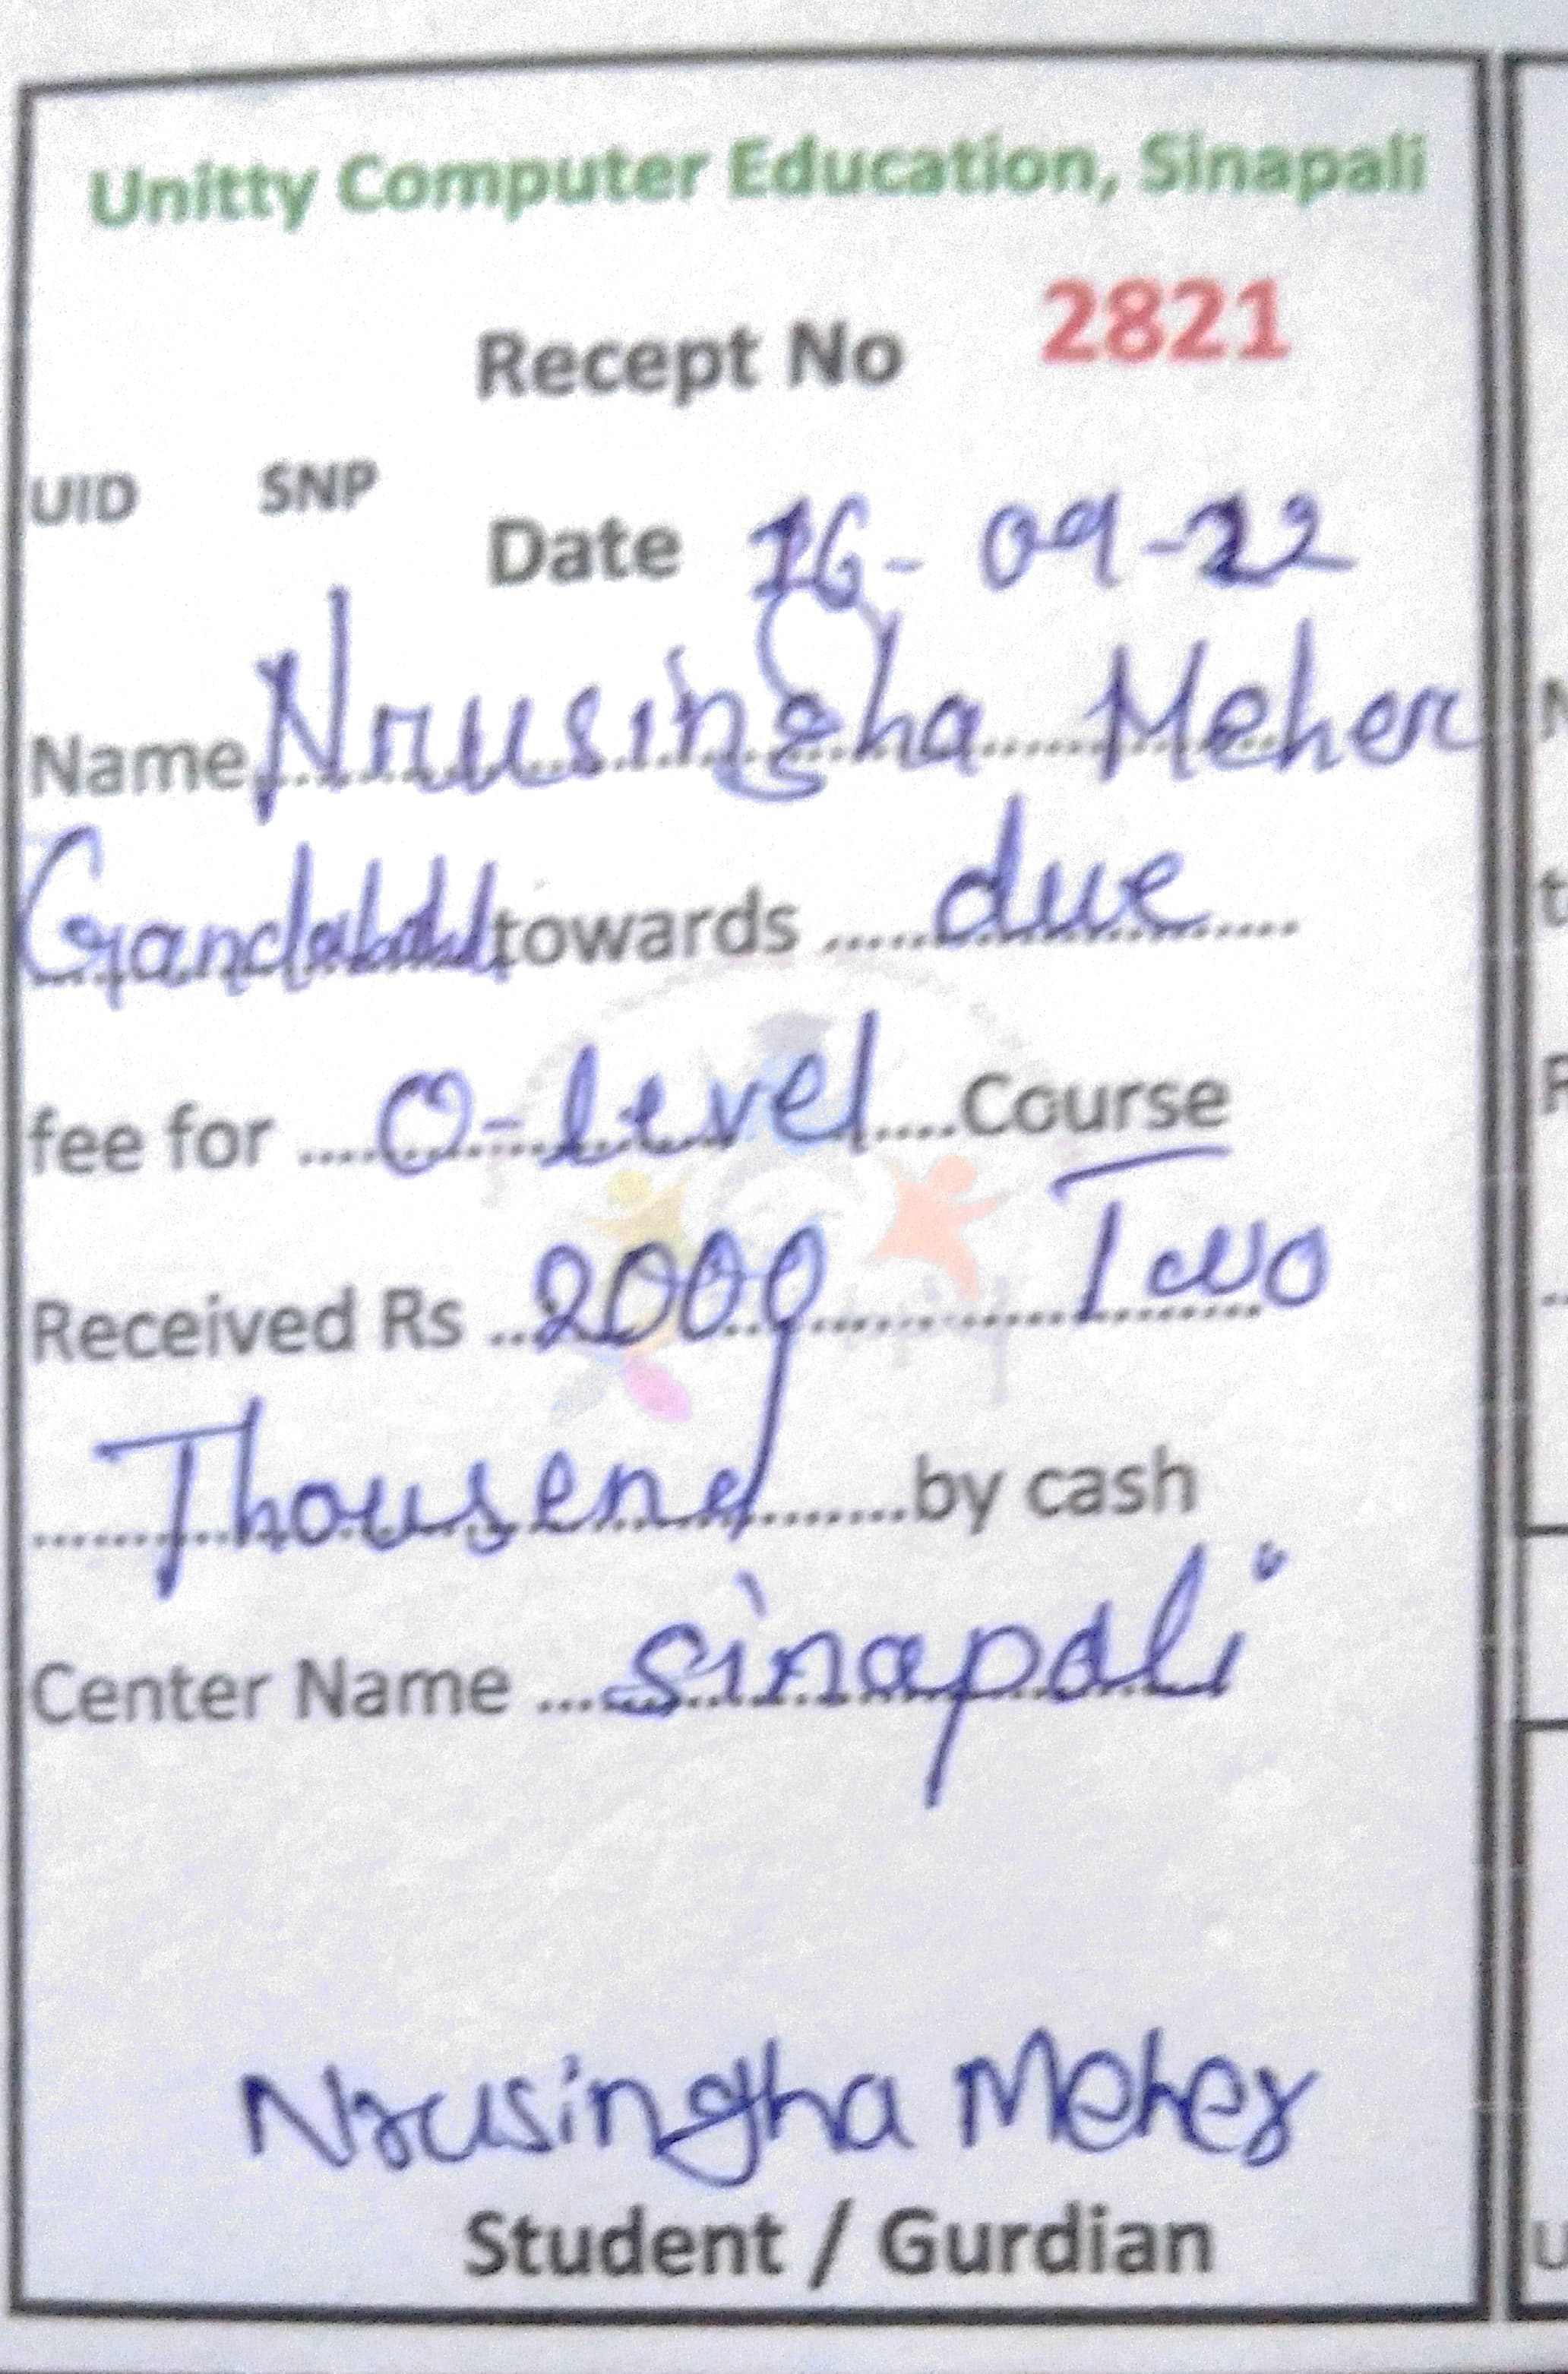 Unitty Computer Education, Sinapali
Recept No 2821
UID SNP
Date 16-09-22
Name Nrusingha Meher
towards due
fee for O-level Course
Received Rs 2000 Two
Thousend by cash
Center Name sinapali
Nrusingha Meher
Student / Gurdian